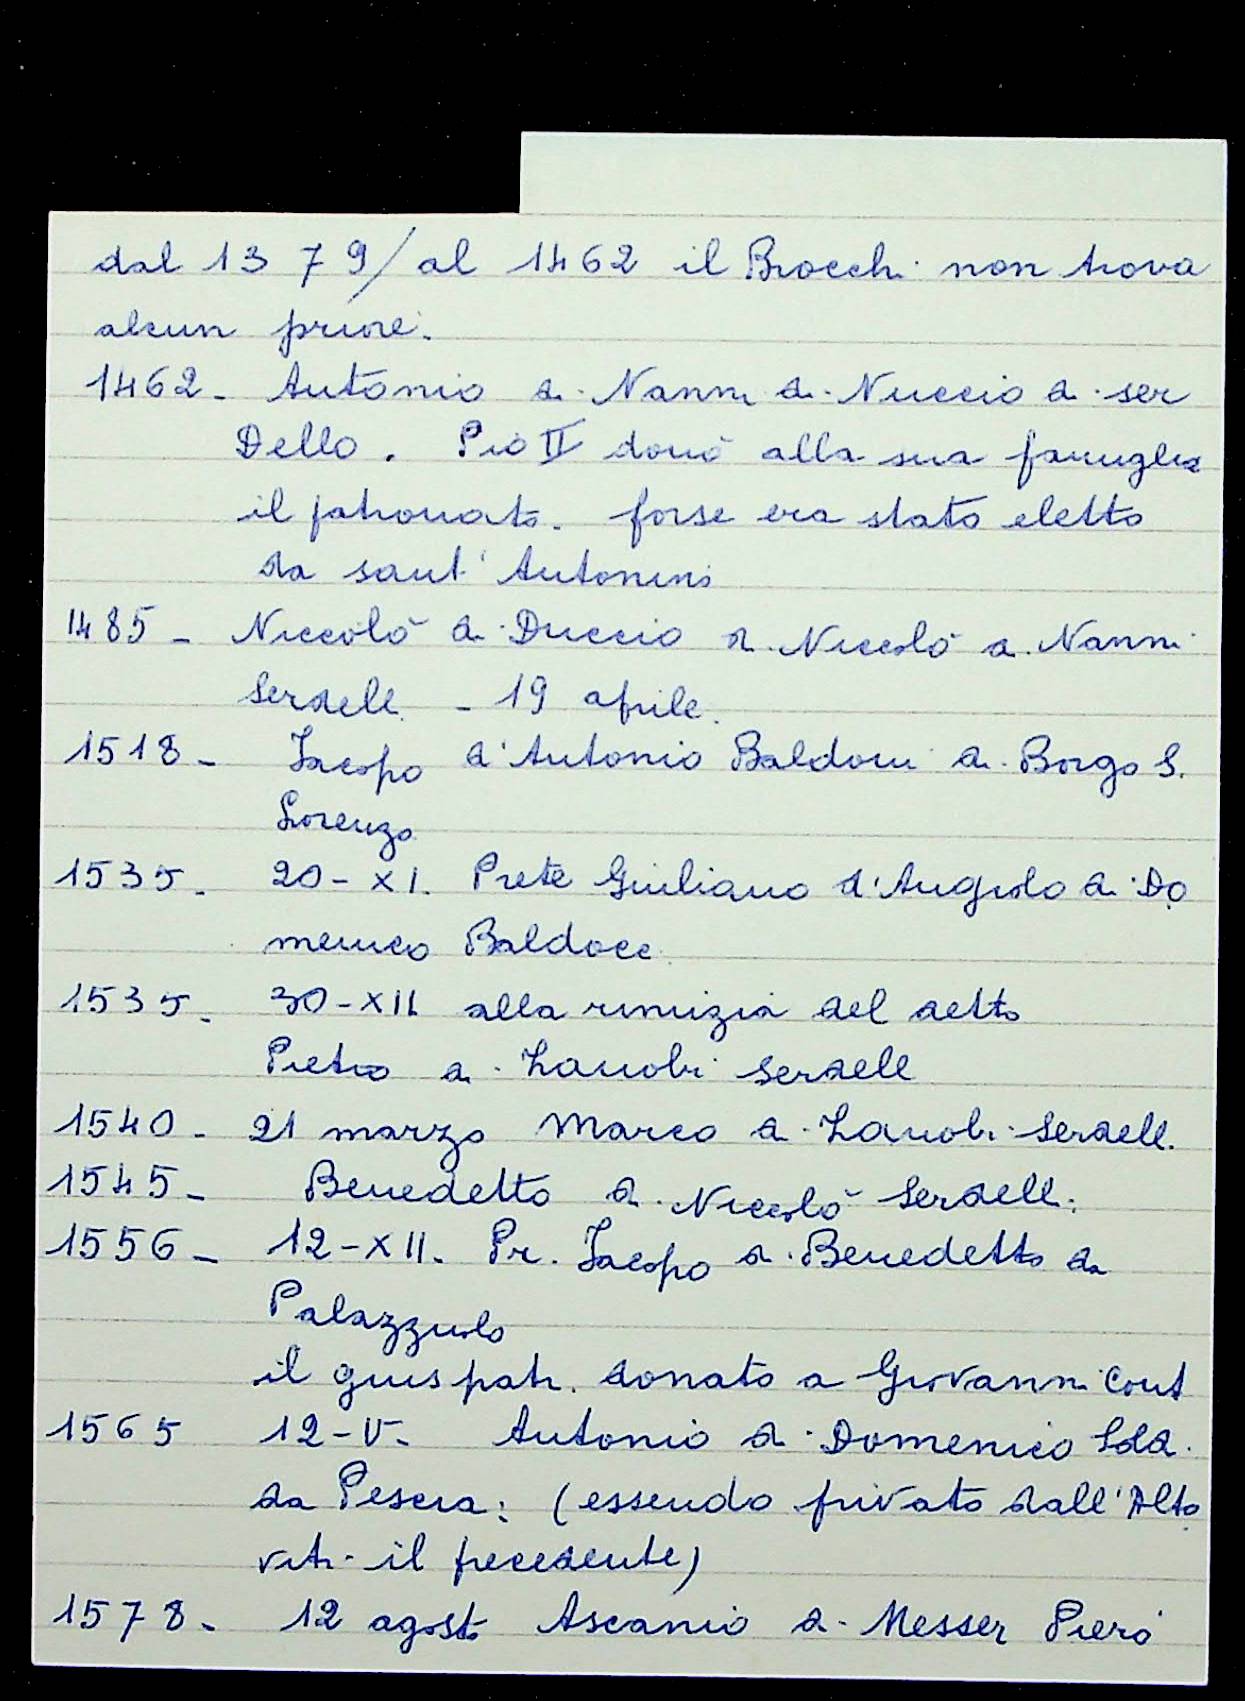 dal 1379/ al 1462 il Brocchi non trova
alcun priore.
1462. Antonio di Nanni di Nuccio di ser
Dello. Pio II donò alla sua famiglia
il patronato. forse era stato eletto
da sant'Antonino
1485 - Niccolò di Duccio di Niccolò di Nanni
Serdelli - 19 aprile.
1518 - Jacopo d'Antonio Baldovi di Borgo S.
Lorenzo
1535. 20-XI. Prete Giuliano d'Angiolo di Do
menico Baldocci
1535. 30-XII alla rinuzia del detto
Pietro di Zanobi Serdelli
1540. 21 marzo Marco di Zanobi Serdelli.
1545 - Benedetto di Niccolò Serdelli.
1556 - 12-XII. Pr. Jacopo di Benedetto da
Palazzuolo
il gius patr. donato a Giovanni Conti
1565 12-V- Antonio di Domenico
da Pescia: (essendo privato dall'Alto
viti il precedente)
1578. 12 agosto Ascanio di Messer Piero